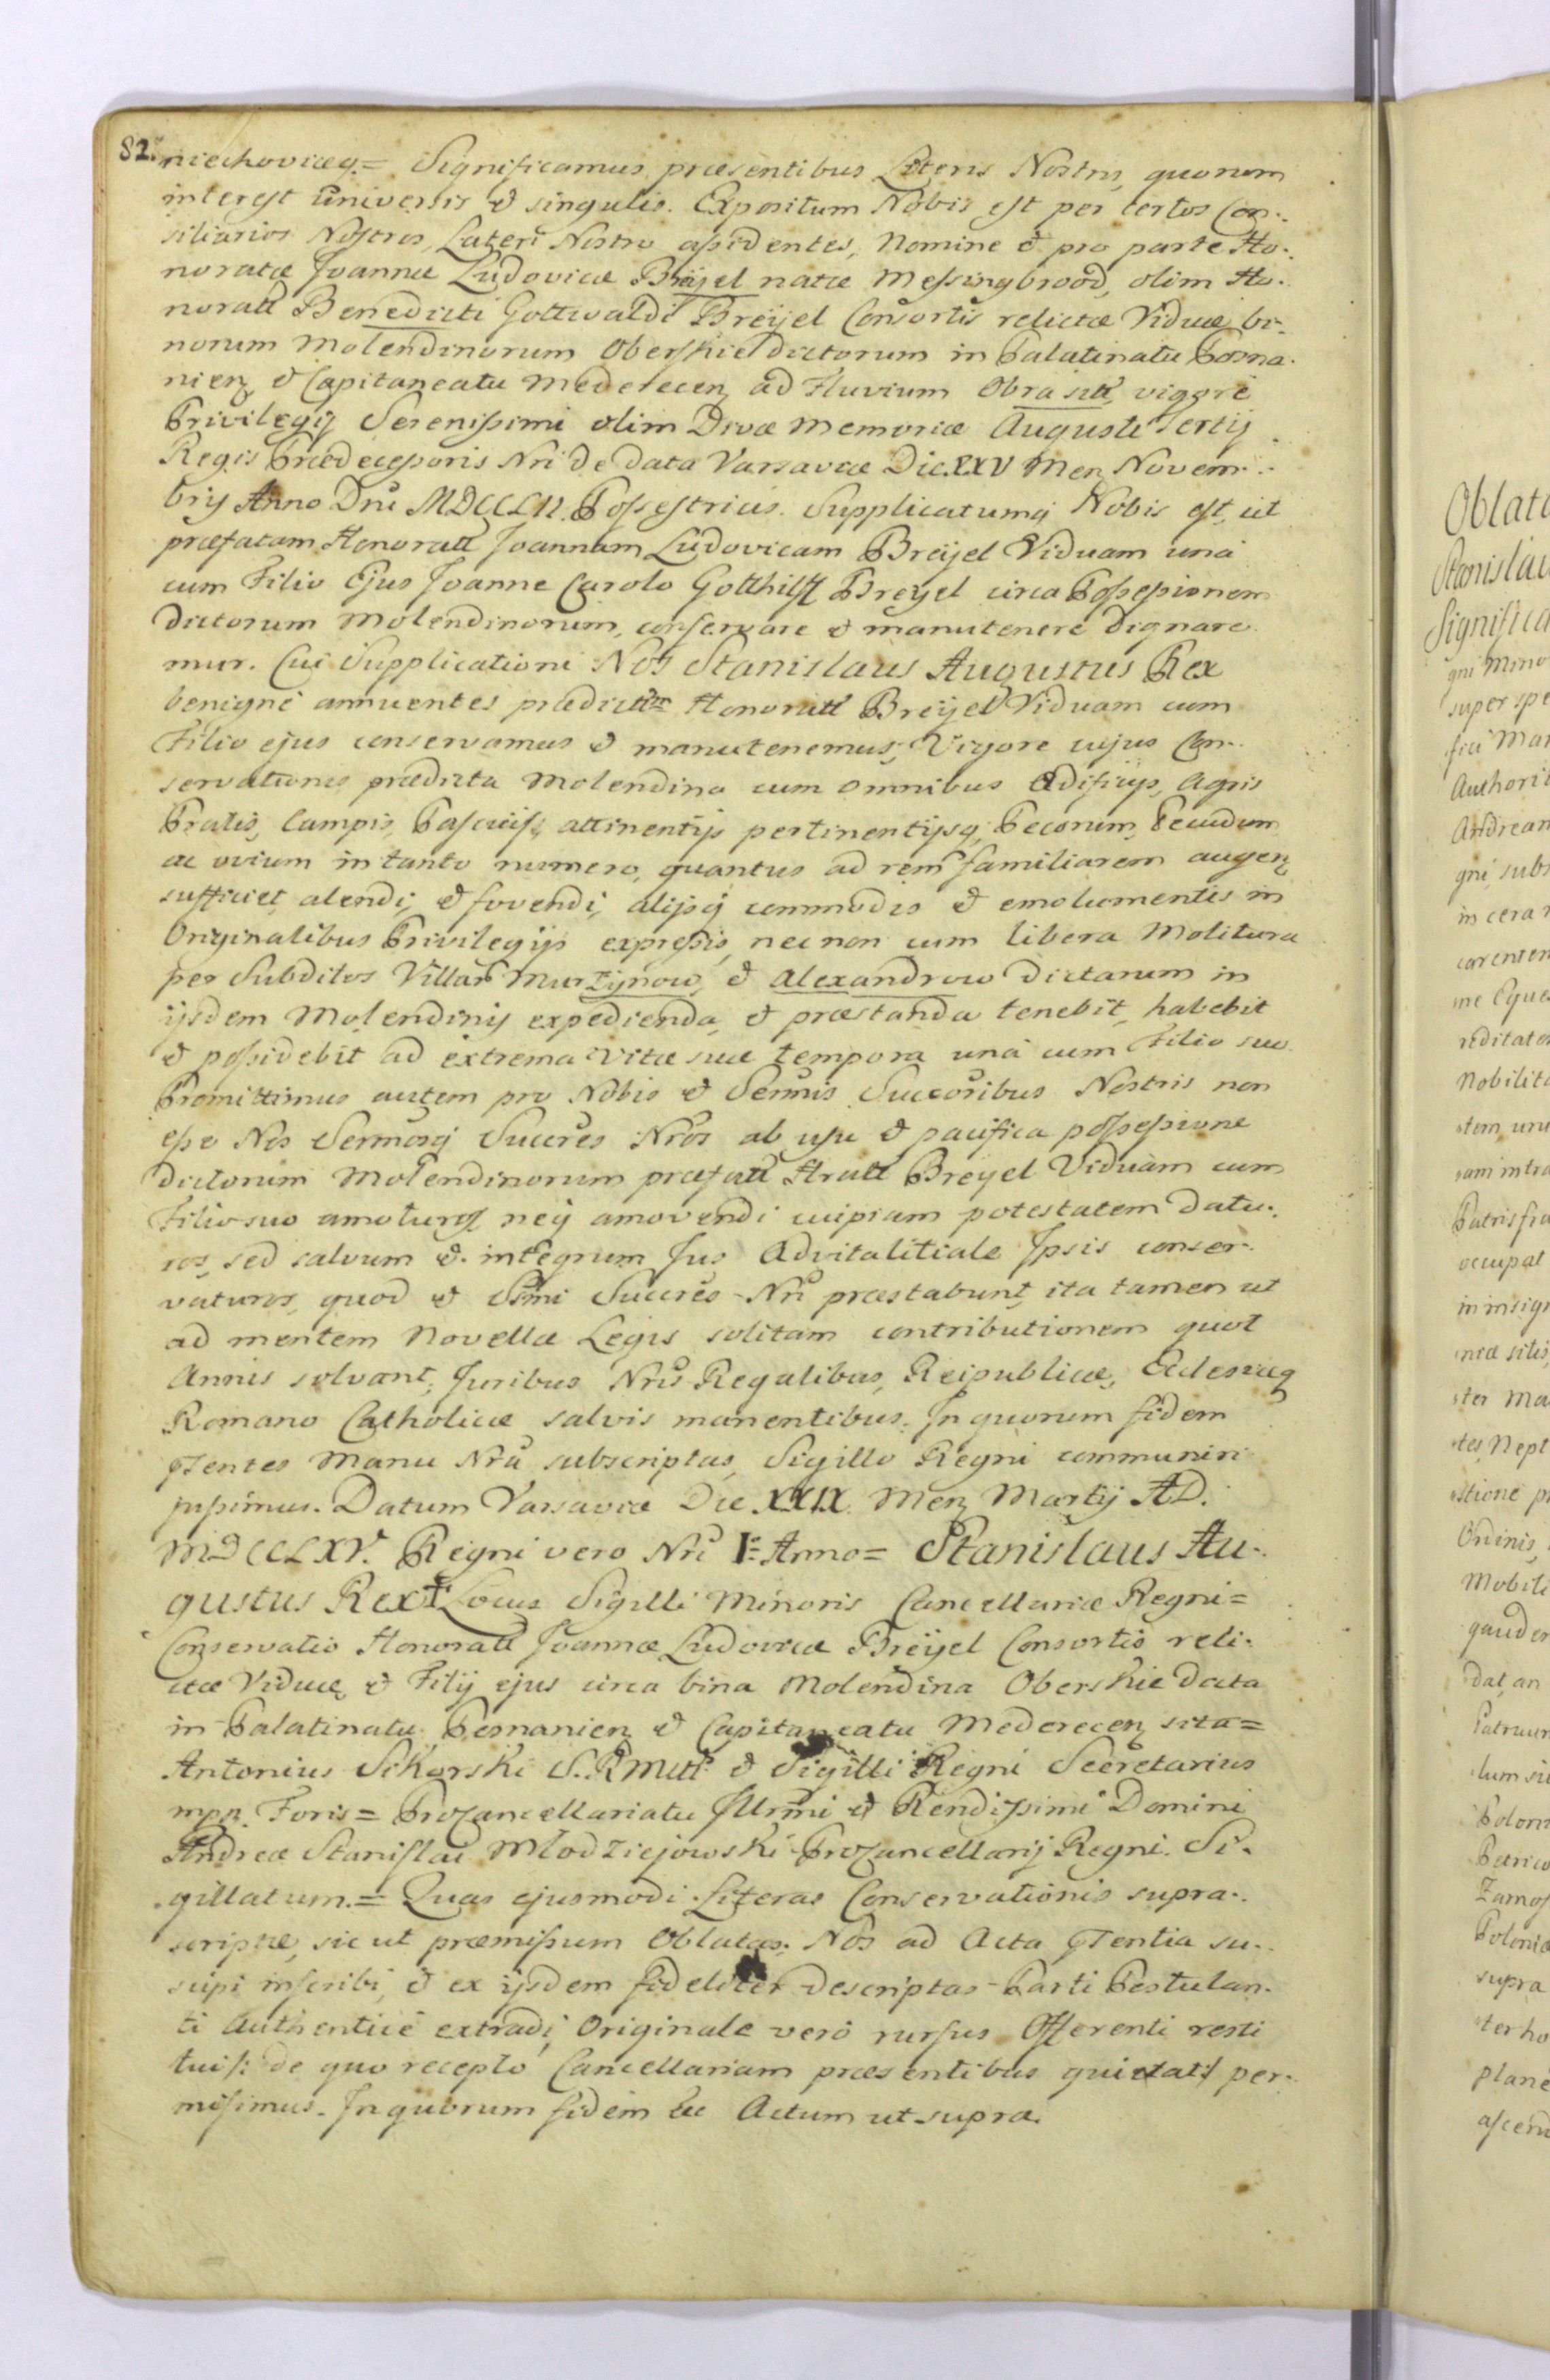 82.
niechoviaeq;= Significamus præsentibus Literis Nostris, quorum
interest universis & singulis. Expositum Nobis est per certos Con-
siliarios Nostros, Lateri Nostro assidentes, Nomine & pro parte Ho-
noratæ Joannæ Ludovicæ Breijel natæ Messingbrood, olim Ho-
noratt Benedicti Gottwaldi Breijel Consortis relictæ Viduæ, bi-
norum Molendinorum Oberskie dictorum in Palatinatu Posna-
nien & Capitaneatu Mederecen ad Fluvium Obra sitt, vigore
Privilegij Serenissimi olim Divæ Memoriæ Augusti Tertij
Regis Prædecessoris Nri de data Varsaviæ Die XXV Men Novem-
bris Anno Dni MDCCLII. Possestricis. Supplicatumq; Nobis est, ut
præfatam Honoratt Joannam Ludovicam Breijel Viduam unà
cum Filio Ejus Joanne Carolo Gotthilff Breijel circa Possessionem
dictorum Molendinorum, conservare & manutenere dignare-
mur. Cui Supplicationi Nos Stanislaus Augustus Rex
benignè annuentes prædictt Honoratt Breijel Viduam cum
Filio ejus conservamus & manutenemus, Vigore cujus Con-
servationis prædicta Molendina cum omnibus Ædificijs, Agris
Pratis, Campis, Pascuisq; attinentijs pertinentijsq; Pecorum, Pecudum
ac ovium in tanto numero, quantus ad rem familiarem augen
sufficiet, alendi, & fovendi, alijsq; commodis & emolumentis in
Originalibus Privilegijs expressis, nec non cum libera Molitura
per Subditos Villar Murzijnow, & Alexandrow dictarum in
ijsdem Molendinis expedienda, & præstanda tenebit, habebit
& possidebit ad extrema Vitæ suæ tempora unà cum Filio suo.
Promittimus autem pro Nobis & Sermis Succoribus Nostris non
esse Nos Sermosq; Succres Nros ab usu & pacifica possessione
dictorum Molendinorum præfatt Hratt Breyel Viduam cum
Filio suo amoturos neq; amovendi cuipiam potestatem datu-
ros, sed salvum & integrum Jus Advitalitiale Ipsis conser-
vaturos, quod & Smi Succres Nri præstabunt, ita tamen ut
ad mentem Novellæ Legis solitam contributionem quot
Annis solvant; Juribus Nris Regalibus, Reipublicæ, Eclesiæq
Romano Catholicæ salvis manentibus. In quorum fidem
pntentes Manu Nra subscriptas, Sigillo Regni communiri
jussimus. Datum Varsaviæ Die XXIX Men Martij AD.
MDCCLXV. Regni vero Nri I= Anno= Stanislaus Au-
gustus Rex Locus Sigilli Minoris Cancellariæ Regni=
Conservatio Honoratt Joannæ Ludovicæ Breijel Consortis reli-
ctæ Viduæ, & Filij ejus circa bina Molendina Oberskie dicta
in Palatinatu Posnanien & Capitaneatu Mederecen sita=
Antonius Sikorski S. R Mtt & Sigilli Regni Secretarius
mpp. Foris= Procancellariatu Illrmi & Rendissimi Domini
Andreæ Stanislai Młodziejowski Procancellarij Regni. Si-
gillatum.= Quas ejusmodi Literas Conservationis supra-
scriptæ, sic ut præmissum Oblatas. Nos ad Acta pntentia su-
scipi inscribi, & ex ijsdem fideliter descriptas Parti Postulan-
ti Authenticè extradi, Originale verò rursus Offerenti resti
tuiss: de quo recepto Cancellariam præsentibus quietat per-
missimus. In quorum fidem &c Actum ut supra.
Oblata
Stanislau
Significa
gni Mino
super spe
Authorit
Andrean
gni, subs
in cera r
carenten
me Eque
reditat
Nobilit
stem, un
Patris fra
occupat
in insig
ster Ma
Ordinis,
Mobili
gauder
dat, an
Patruum
lum si
Polon
Petrico
Zamos
Polonia
supra
ter ho
plane
ascend